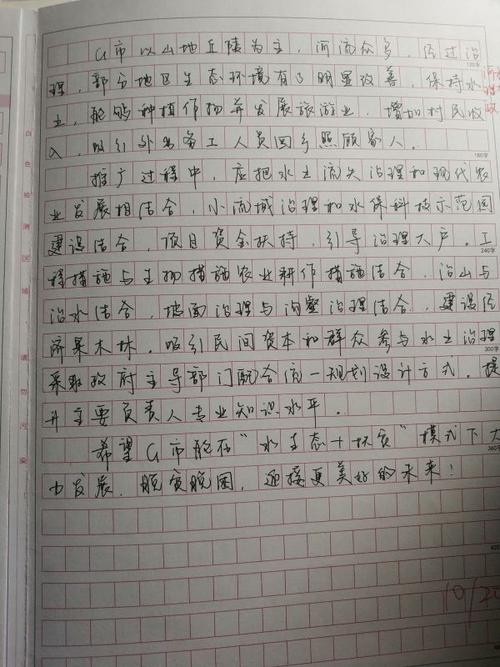 G市以山地丘陵为主，河流众多，经过治
理，部分地区生态环境有了明显改善，保持水
土，能够种植作物并发展旅游业，增加村民收
入，吸引外出务工人员回乡照顾家人。
推广过程中，应把水土流失治理和现代农
业发展相结合，小流域治理和水保科技示范园
建设结合，项目资金扶持，引导治理大户。工
程措施与生物措施农业耕作措施结合，治山与
治水结合，坡面治理与沟壑治理结合，建设经
济果木林，吸引民间资本和群众参与水土治理
采取政府主导部门配合统一规划设计方式，提
升主要负责人专业知识水平。
希望G市能在“水生态+扶贫”模式下大
力发展，脱贫脱困，迎接更美好的未来！
10/20